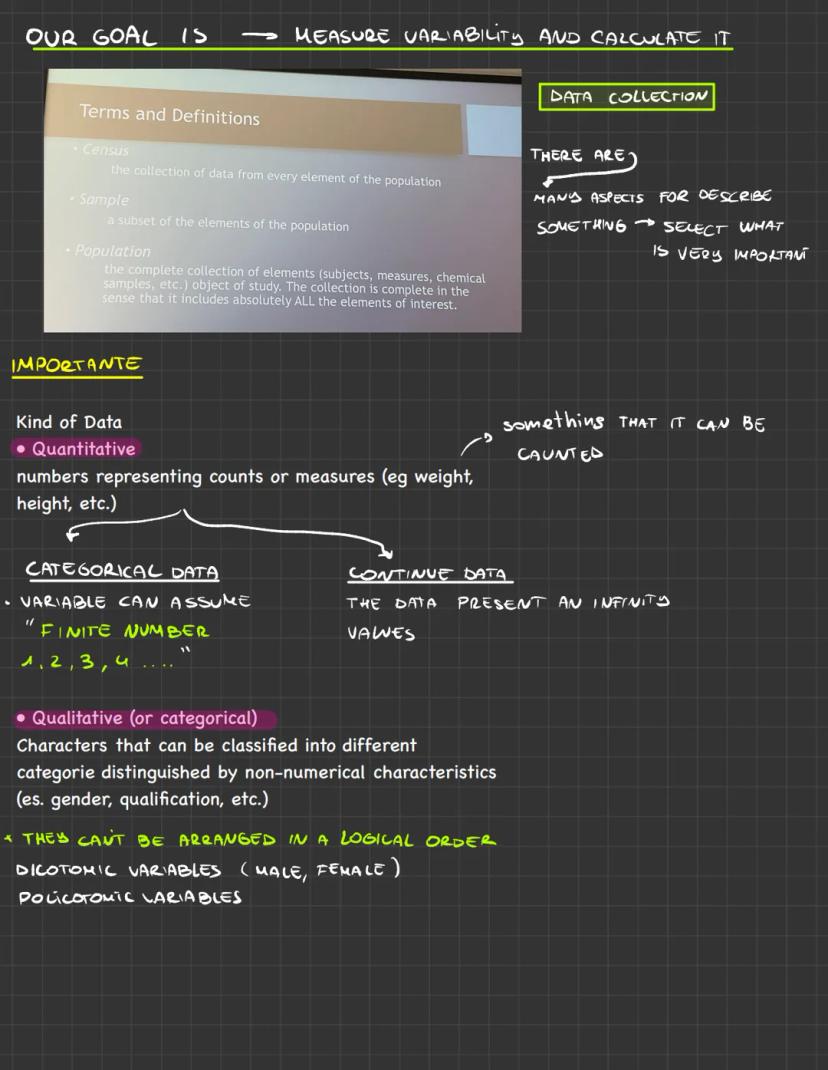 OUR GOAL IS → MEASURE VARIABILITY AND CALCULATE IT
Terms and Definitions
• Census
the collection of data from every element of the population
• Sample
a subset of the elements of the population
• Population
the complete collection of elements (subjects, measures, chemical
samples, etc.) object of study. The collection is complete in the
sense that it includes absolutely ALL the elements of interest.
DATA COLLECTION
THERE ARE
MANY ASPECTS FOR DESCRIBE
SOMETHING → SELECT WHAT
IS VERY IMPORTANT
IMPORTANTE
Kind of Data
• Quantitative
numbers representing counts or measures (eg weight,
height, etc.)
something THAT IT CAN BE
CAUNTED
CATEGORICAL DATA
• VARIABLE CAN ASSUME
"FINITE NUMBER
1, 2, 3, 4 ...."
CONTINUE DATA
THE DATA PRESENT AN INFINITY
VALUES
• Qualitative (or categorical)
Characters that can be classified into different
categorie distinguished by non-numerical characteristics
(es. gender, qualification, etc.)
* THEY CAN'T BE ARRANGED IN A LOGICAL ORDER
DICOTOMIC VARIABLES (MALE, FEMALE)
POLICOTOMIC VARIABLES